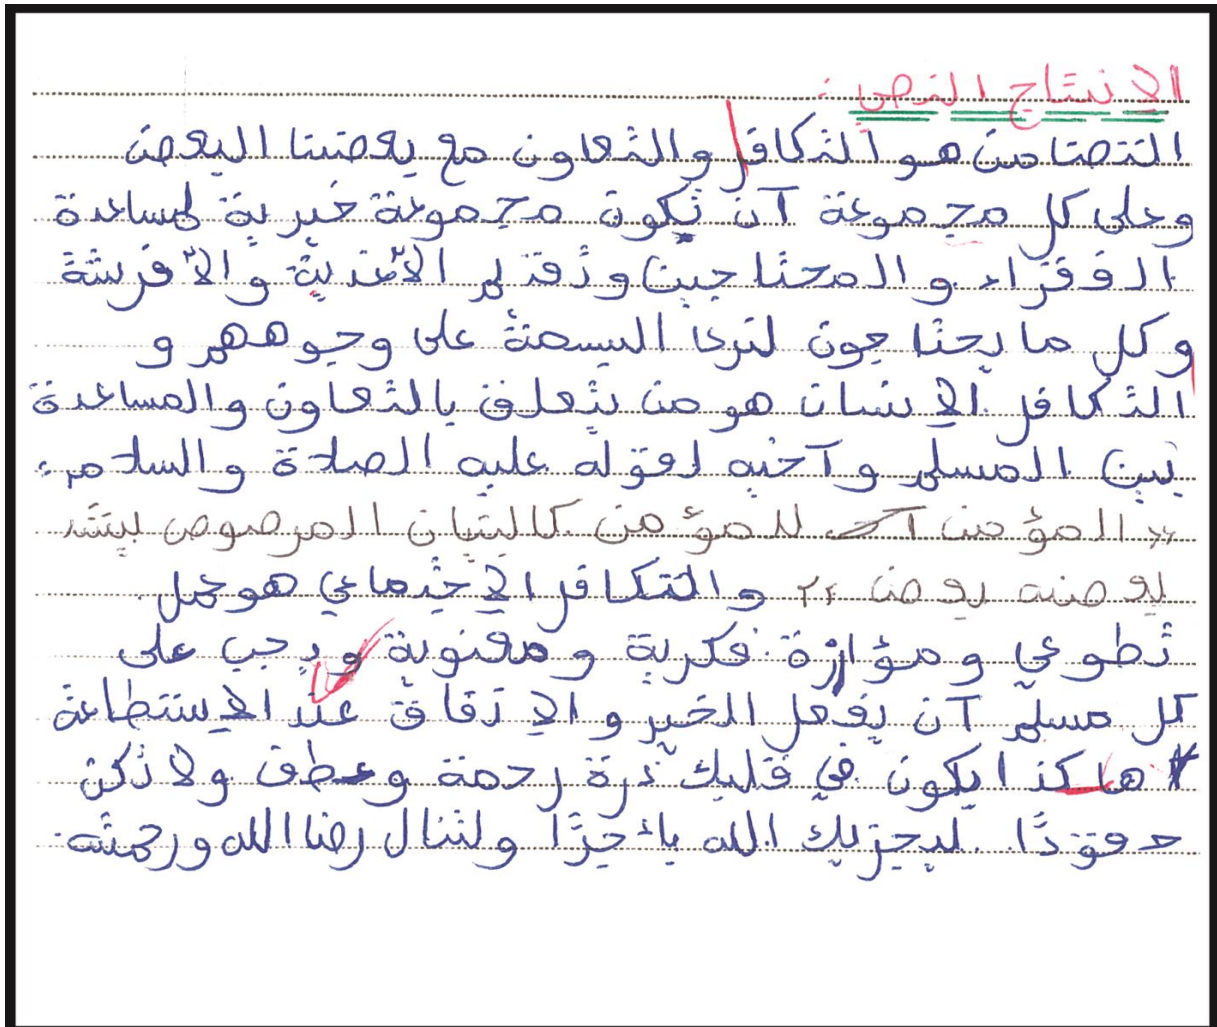 الإنتاج النصي :
التضامن هو التكافل والتعاون مع بعضنا البعض
وعلى كل مجموعة آن تكون مجموعة خيرية لمساعدة
الفقراء والمحتاجين وتقدم الأغذية والأفرشة
وكل ما يحتاجون لترى البسمة على وجوههم و
التكافل الإنسان هو من يتعلق بالتعاون والمساعدة
بين المسلم وآخيه لقوله عليه الصلاة والسلام:
« المؤمن للمؤمن كالبنيان المرصوص يشد
بعضه بعض » والتكافل الإجتماعي هو عمل
تطوعي ومؤازرة فكرية ومعنوية ويجب على
كل مسلم آن يفعل الخير والإنفاق عند الإستطاعة
هاكذا يكون في قلبك ذرة رحمة وعطف ولا تكن
حقودًا. ليجزيك الله بأجرًا ولتنال رضا الله ورحمته.